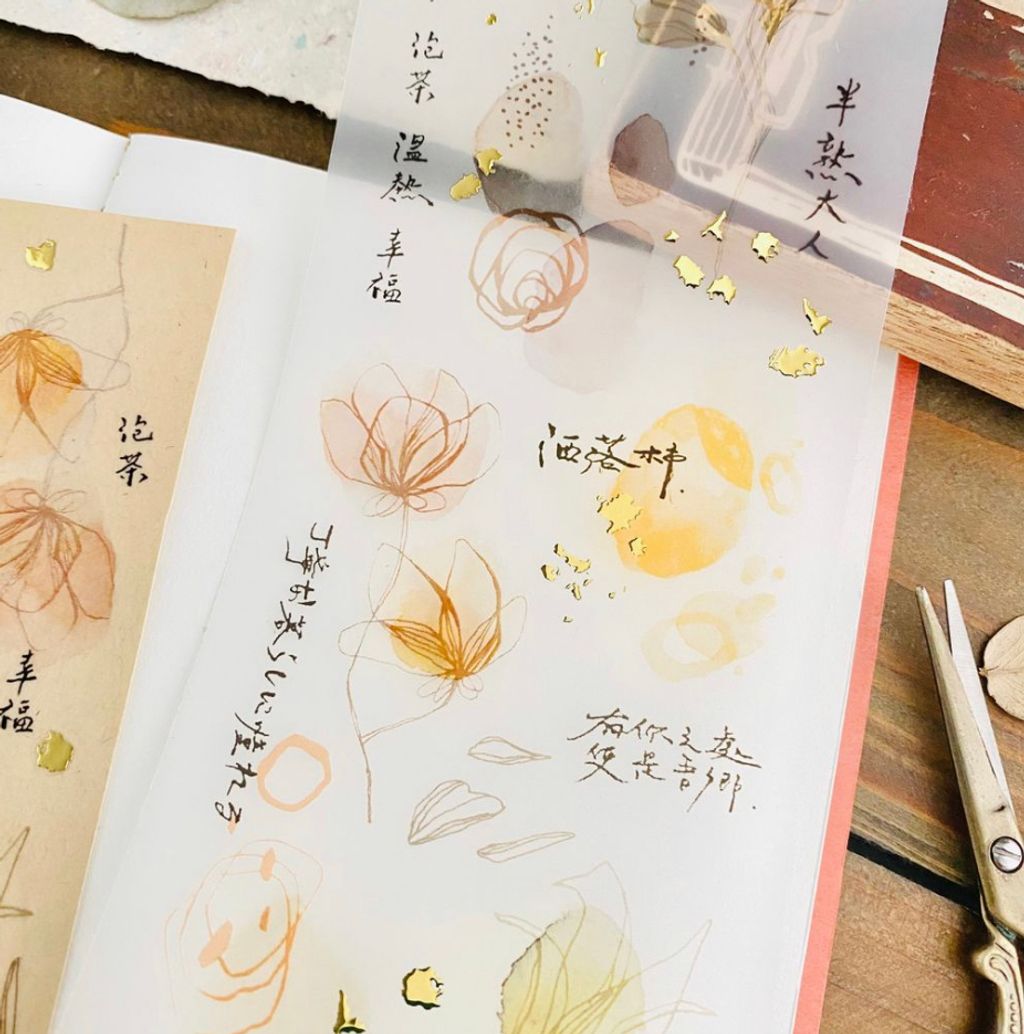 泡茶
溫熱
幸福
半熟大人
洒落柿.
丁寧な暮らしに憧れる
有你之處
便是吾鄉.
泡茶
幸福